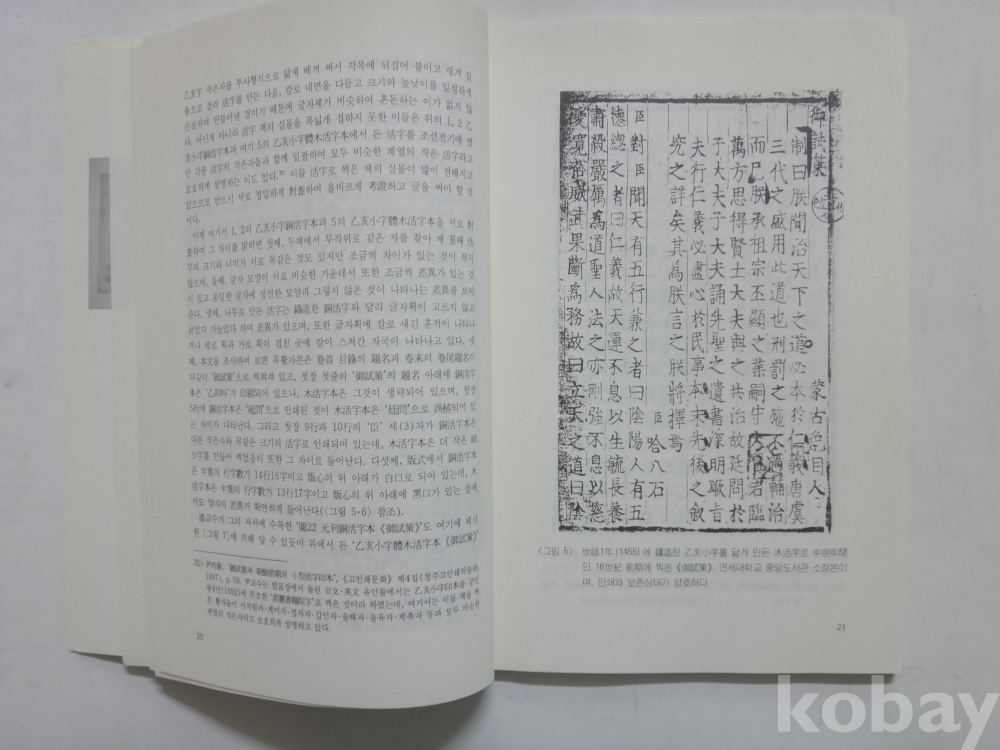 乙亥字 작은자를 투사형식으로 닮게 베껴 써서 각목에 뒤집어 붙이고 새겨 실
톱으로 잘라 活字를 만든 다음, 칼로 네면을 다듬고 크기와 높낮이를 일정하게
손질하여 만들어낸 것이기 때문에 글자체가 비슷하여 혼돈하는 이가 없지 않
다. 아닌게 아니라 活字 책의 실물을 폭넓게 접하지 못한 이들은 위의 1, 2 乙
亥小字銅活字本과 여기 5의 乙亥小字體木活字本에서 든 活字를 조선전기에 썼
던 각종 活字의 작은자들과 함께 일괄하여 모두 비슷한 계열의 작은 活字라고
모호하게 설명하는 이도 있다. 이들 活字로 찍은 책의 실물이 많이 전해지고
있으므로 반드시 서로 정밀하게 對査하여 올바르게 考證하고 글을 써야 할 것
이다.
이제 여기서 1, 2의 乙亥小字銅活字本과 5의 乙亥小字體木活字本을 서로 對
査하여 그 차이를 밝히면 첫째, 두책에서 무작위로 같은 자를 찾아 재 볼때 活
字의 크기와 너비가 서로 똑같은 것도 있지만 조금씩 차이가 있는 것이 적지
않으며, 둘째, 글자 모양이 서로 비슷한 가운데서 또한 조금씩 差異가 있는 것
이 있고 동일한 글자에 정연한 모양과 그렇지 않은 것이 나타나는 差異를 보여
준다. 셋째, 나무로 만든 活字는 鑄造한 銅活字와 달리 글자획이 고르지 않고
굵었다 가늘었다 하여 差異가 있으며, 또한 글자획에 칼로 새긴 흔적이 나타나
거나 세로 획과 가로 획이 겹친 곳에 칼이 스쳐간 자국이 나타나고 있다. 넷
째, 本文을 조사하여 보면 목활자본은 卷首 目錄의 題名과 卷末의 卷尾題名이
다같이 “御試策”으로 찍혀져 있고, 첫장 첫줄의 ‘御試策’의 題名 아래에 銅活字
本은 ‘乙卯科’가 印刷되어 있으나, 木活字本은 그것이 생략되어 있으며, 첫장
5行에 銅活字本은 “延問”으로 인쇄된 것이 木活字本은 “廷問”으로 誤植되어 있
는 차이가 나타난다. 그리고 첫장 9行과 10行의 ‘臣’ 세(3)자가 銅活字本은
다른 작은자와 똑같은 크기의 活字로 인쇄되어 있는데, 木活字本은 더 작은 細
小字를 만들어 찍었음이 못뚱한 그 차이로 들어난다. 다섯째, 版式에서 銅活字
本은 半葉의 行字數가 14行16字이고 版心의 위 아래가 白口로 되어 있는데, 木
活字本은 半葉의 行字數가 13行17字이고 版心의 위 아래에 黑口가 있는 점에
서도 양자의 差異가 확연하게 들어난다(〈그림 5·6〉 참조).
潘교수가 그의 저서에 수록한 ‘圖22 元刊銅活字本《御試策》’도 여기에 제시
한 〈그림 7〉에 의해 알 수 있듯이 위에서 든 ‘乙亥小字體木活字本《御試策》’
尹丙泰, “御試策과 朝鮮前期의 小型活字印本”, 《고인쇄문화》 제4집(청주고인쇄박물관,
1997), p.59.
20
御試策
蒙古色目人
制曰朕聞治天下之道必本於仁義唐虞
三代之盛用此道也刑罰之施不過輔治
而已朕承祖宗丕顯之業嗣守方君臨
萬方思得賢士大夫與之共治故廷問於
子大夫子大夫誦先聖之遺書深明厥旨
夫行仁義必盡心於民事本末先後之敘
究之詳矣其爲朕言之朕將擇焉
臣 哈八石
臣對臣聞天有五行兼之者曰陰陽人有五
德惣之者曰仁義故天運不息以生毓長養
肅殺嚴厲爲道聖人法之亦剛強不息以慈
愛寬裕威武果斷爲務故曰立天之道曰陰
〈그림 5〉 世祖1年(1455)에 鑄造한 乙亥小字를 닮게 만든 木活字로 中宗年間
인 16世紀 前期에 찍은 《御試策》. 연세대학교 중앙도서관 소장본이
며, 인쇄와 보존상태가 양호하다.
21
kobay